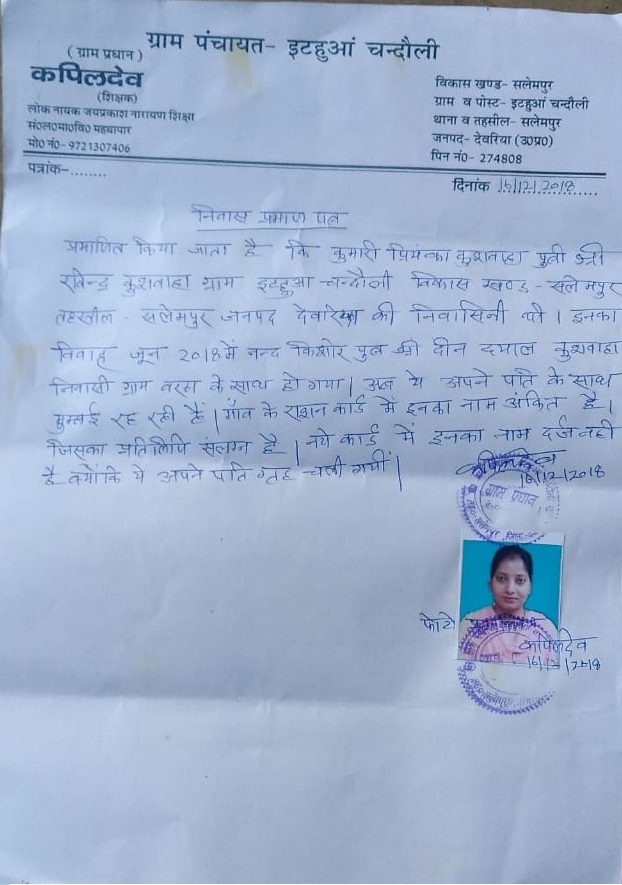 ग्राम पंचायत- इटहुआं चन्दौली
( ग्राम प्रधान )
कपिलदेव
(शिक्षक)
लोक नायक जयप्रकाश नारायण शिक्षा
सं०ल०मा०वि० महथापार
मो० नं०- 9721307406
विकास खण्ड- सलेमपुर
ग्राम व पोस्ट- इटहुआं चन्दौली
थाना व तहसील- सलेमपुर
जनपद- देवरिया (उ०प्र०)
पिन नं०- 274808
पत्रांक-........
दिनांक 16/12/2018
निवास प्रमाण पत्र
प्रमाणित किया जाता है कि कुमारी प्रियंका कुशवाहा पुत्री श्री
रविन्द्र कुशवाहा ग्राम इटहुआ चन्दौली विकास खण्ड - सलेमपुर
तहसील - सलेमपुर जनपद देवरिया की निवासिनी थी। इनका
विवाह जून 2018 में नन्द किशोर पुत्र श्री दीन दयाल कुशवाहा
निवासी ग्राम के साथ हो गया। अब ये अपने पति के साथ
मुम्बई रह रही हैं। गाँव के राशन कार्ड में इनका नाम अंकित है।
जिसका प्रतिलिपि संलग्न है। नये कार्ड में इनका नाम दर्ज नही
है क्योंकि ये अपने पति गृह चली गयीं।
कपिलदेव
16/12/2018
ग्राम प्रधान
फोटो
कपिलदेव
16/12/2018